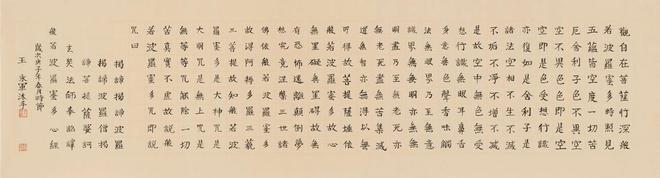 觀自在菩薩行深般
若波羅蜜多時照見
五蘊皆空度一切苦
厄舍利子色不異空
空不異色色即是空
空即是色受想行識
亦復如是舍利子是
諸法空相不生不滅
不垢不淨不增不減
是故空中無色無受
想行識無眼耳鼻舌
身意無色聲香味觸
法無眼界乃至無意
識界無無明亦無無
明盡乃至無老死亦
無老死盡無苦集滅
道無智亦無得以無
所得故菩提薩埵依
般若波羅蜜多故心
無罣礙無罣礙故無
有恐怖遠離顛倒夢
想究竟涅槃三世諸
佛依般若波羅蜜多
故得阿耨多羅三藐
三菩提故知般若波
羅蜜多是大神咒是
大明咒是無上咒是
無等等咒能除一切
苦真實不虛故說般
若波羅蜜多咒即說
咒曰
揭諦揭諦波羅
揭諦波羅僧揭
諦菩提薩婆訶
玄奘法師奉詔譯
般若波羅蜜多心經
歲次庚子年春月時節
王永軍沐手